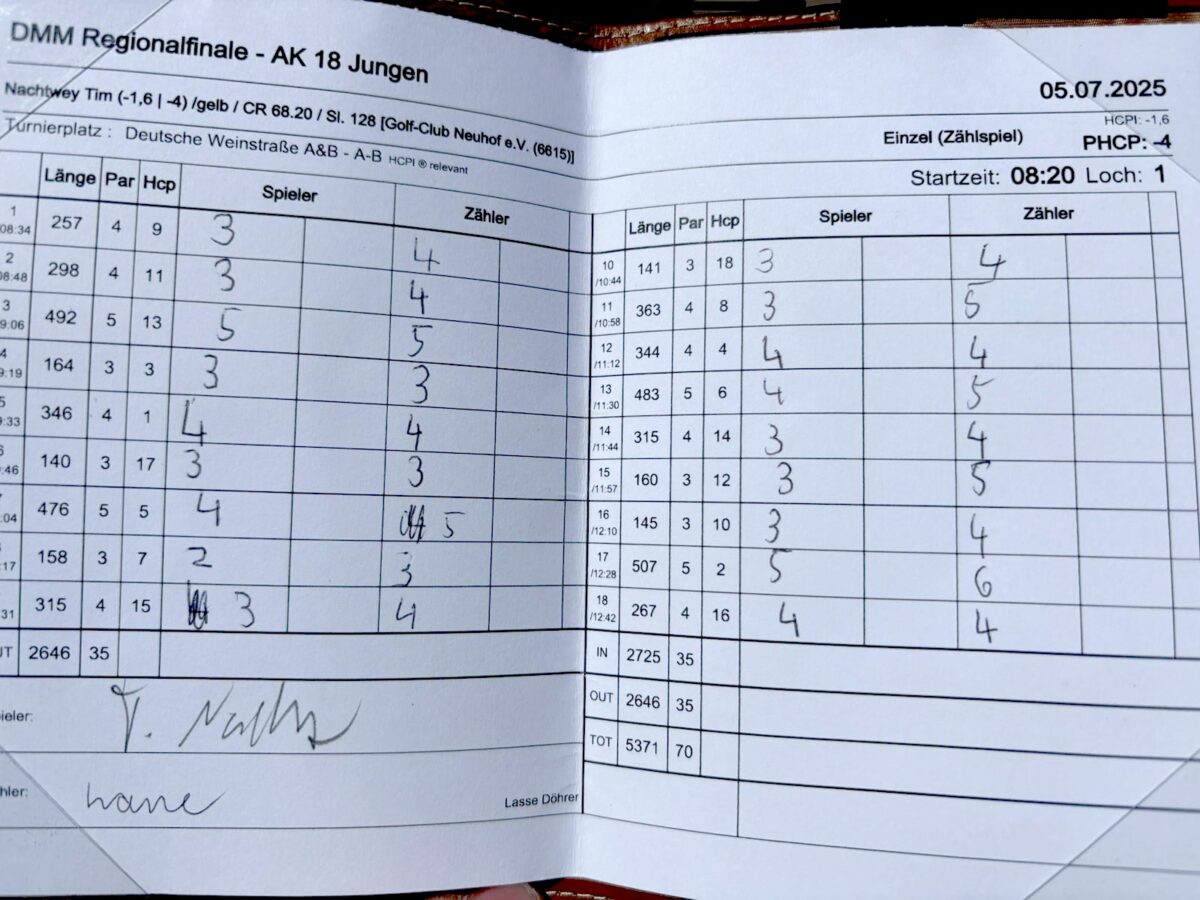 DMM Regionalfinale - AK 18 Jungen
Nachtwey Tim (-1,6 | -4) /gelb / CR 68.20 / Sl. 128 [Golf-Club Neuhof e.V. (6615)]
Turnierplatz : Deutsche Weinstraße A&B - A-B HCPI ® relevant
Länge Par Hcp Spieler Zähler
1 08:34 257 4 9 3 4
2 08:48 298 4 11 3 4
3 9:06 492 5 13 5 5
4 9:19 164 3 3 3 3
5 9:33 346 4 1 4 4
:46 140 3 17 3 3
:04 476 5 5 4 5
:17 158 3 7 2 3
31 315 4 15 3 4
UT 2646 35
ieler: T. Nacht
hler: Lasse Döhrer
05.07.2025
HCPI: -1,6
Einzel (Zählspiel) PHCP: -4
Startzeit: 08:20 Loch: 1
Länge Par Hcp Spieler Zähler
10 /10:44 141 3 18 3 4
11 /10:58 363 4 8 3 5
12 /11:12 344 4 4 4 4
13 /11:30 483 5 6 4 5
14 /11:44 315 4 14 3 4
15 /11:57 160 3 12 3 5
16 /12:10 145 3 10 3 4
17 /12:28 507 5 2 5 6
18 /12:42 267 4 16 4 4
IN 2725 35
OUT 2646 35
TOT 5371 70